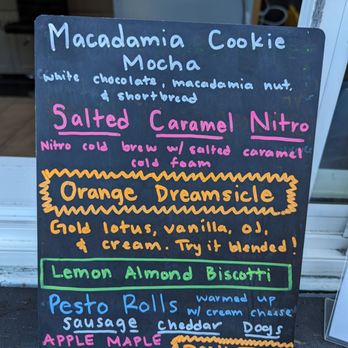 Macadamia Cookie
Mocha
white chocolate, macadamia nut,
& shortbread
Salted Caramel Nitro
Nitro cold brew w/ salted caramel
cold foam
Orange Dreamsicle
Gold lotus, vanilla, OJ,
& cream. Try it blended!
Lemon Almond Biscotti
Pesto Rolls warmed up
w/ cream cheese
sausage cheddar Dogs
APPLE MAPLE